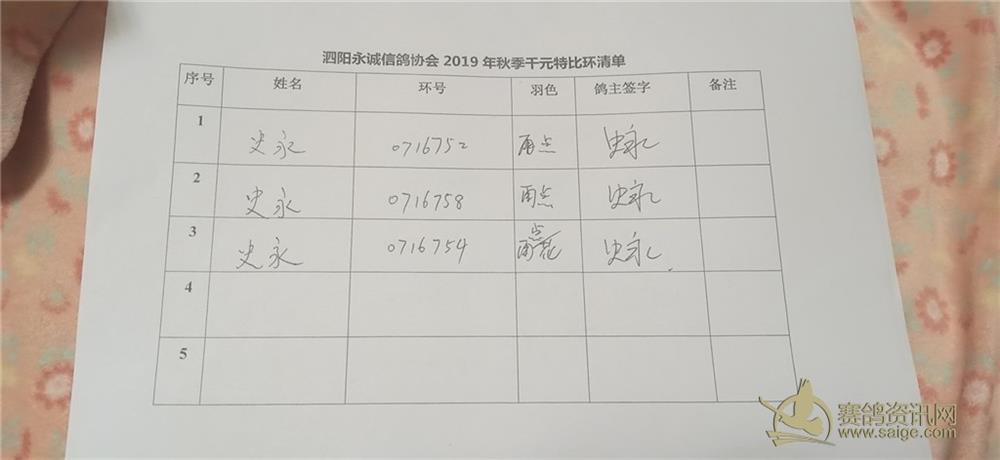 泗阳永诚信鸽协会 2019 年秋季千元特比环清单
序号 姓名 环号 羽色 鸽主签字 备注
1 史永 0716752 雨点 史永
2 史永 0716758 雨点 史永
3 史永 0716754 雨 点 史永
4
5
赛鸽资讯网
www.saige.com